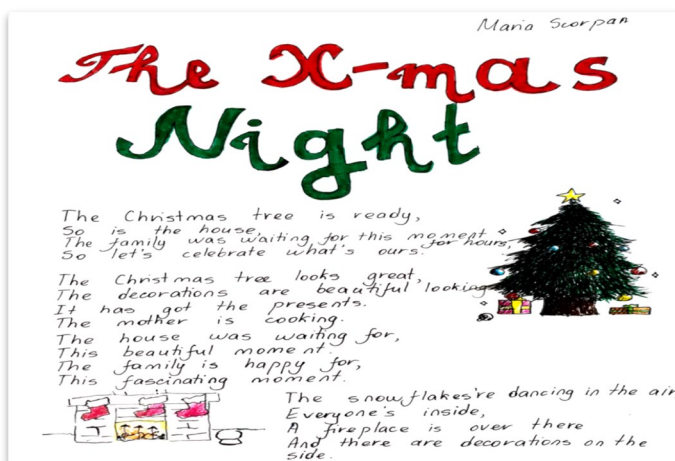 Maria Scorpan
The X-mas
Night
The Christmas tree is ready,
So is the house,
The family was waiting for this moment for hours,
So let's celebrate what's ours.
The Christmas tree looks great,
The decorations are beautiful looking
It has got the presents.
The mother is cooking.
The house was waiting for,
This beautiful moment.
The family is happy for,
This fascinating moment.
The snowflakes're dancing in the air
Everyone's inside,
A fireplace is over there
And there are decorations on the
side.